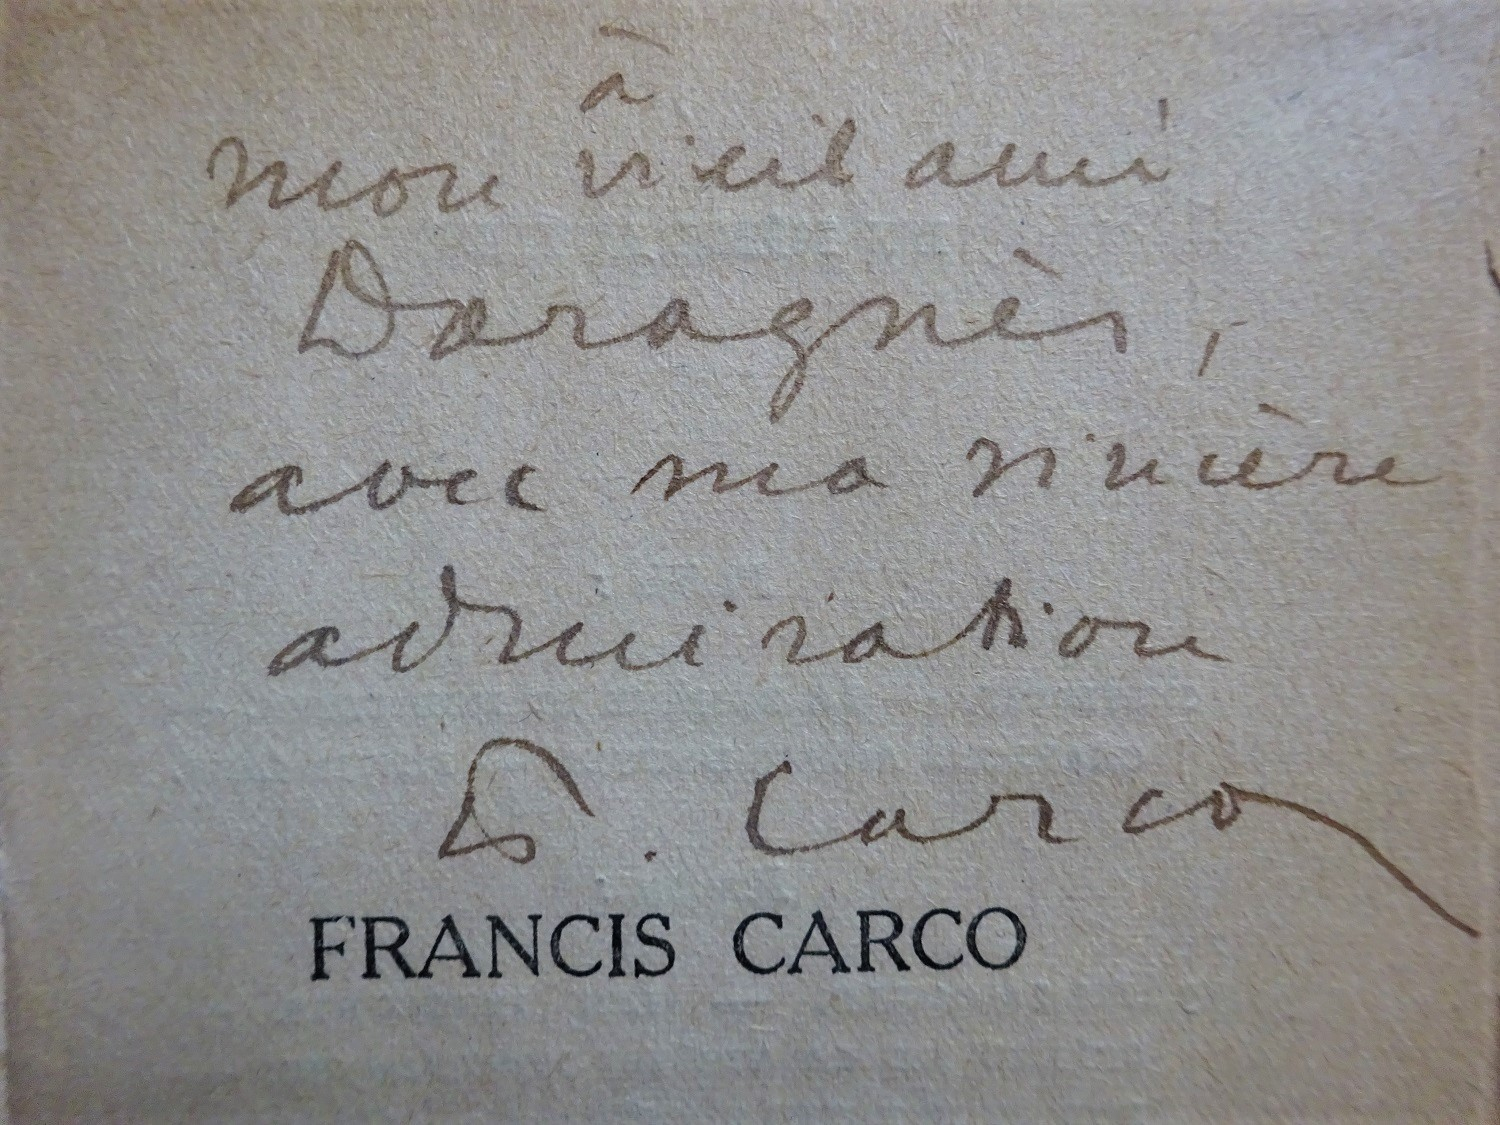 à
mon vieil ami
Daragnès,
avec ma sincère
admiration
F. Carco
FRANCIS CARCO